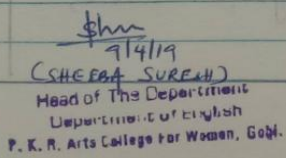 9/4/19
(SHEEBA SURESH)
Head of The Department
Department of English
P. K. R. Arts College For Women, Gobi.